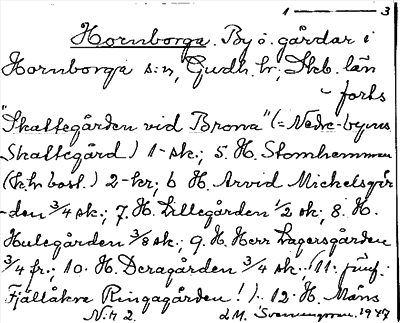 1 — 3
Hornborga. By o. gårdar i
Hornborga s:n, Gudh. hr; Skb. län
forts
"Skattegården vid Brona" (= Nedre-byns
Skattegård) 1 sk.; 5. H. Stomhemman
(k:hr bost.) 2-kr; 6 H. Arvid Michelsgår
-den 3/4 sk.; 7. H. Lillegården 1/2 sk; 8. H.
Hulegården 3/8 sk.; 9. H. Herr Lagersgården
3/4 fr.; 10. H. Deragården 3/4 sk.; (11. jämf.
Fjällåkra Ringagården!). 12. H. Måns
N:r 2. 1947